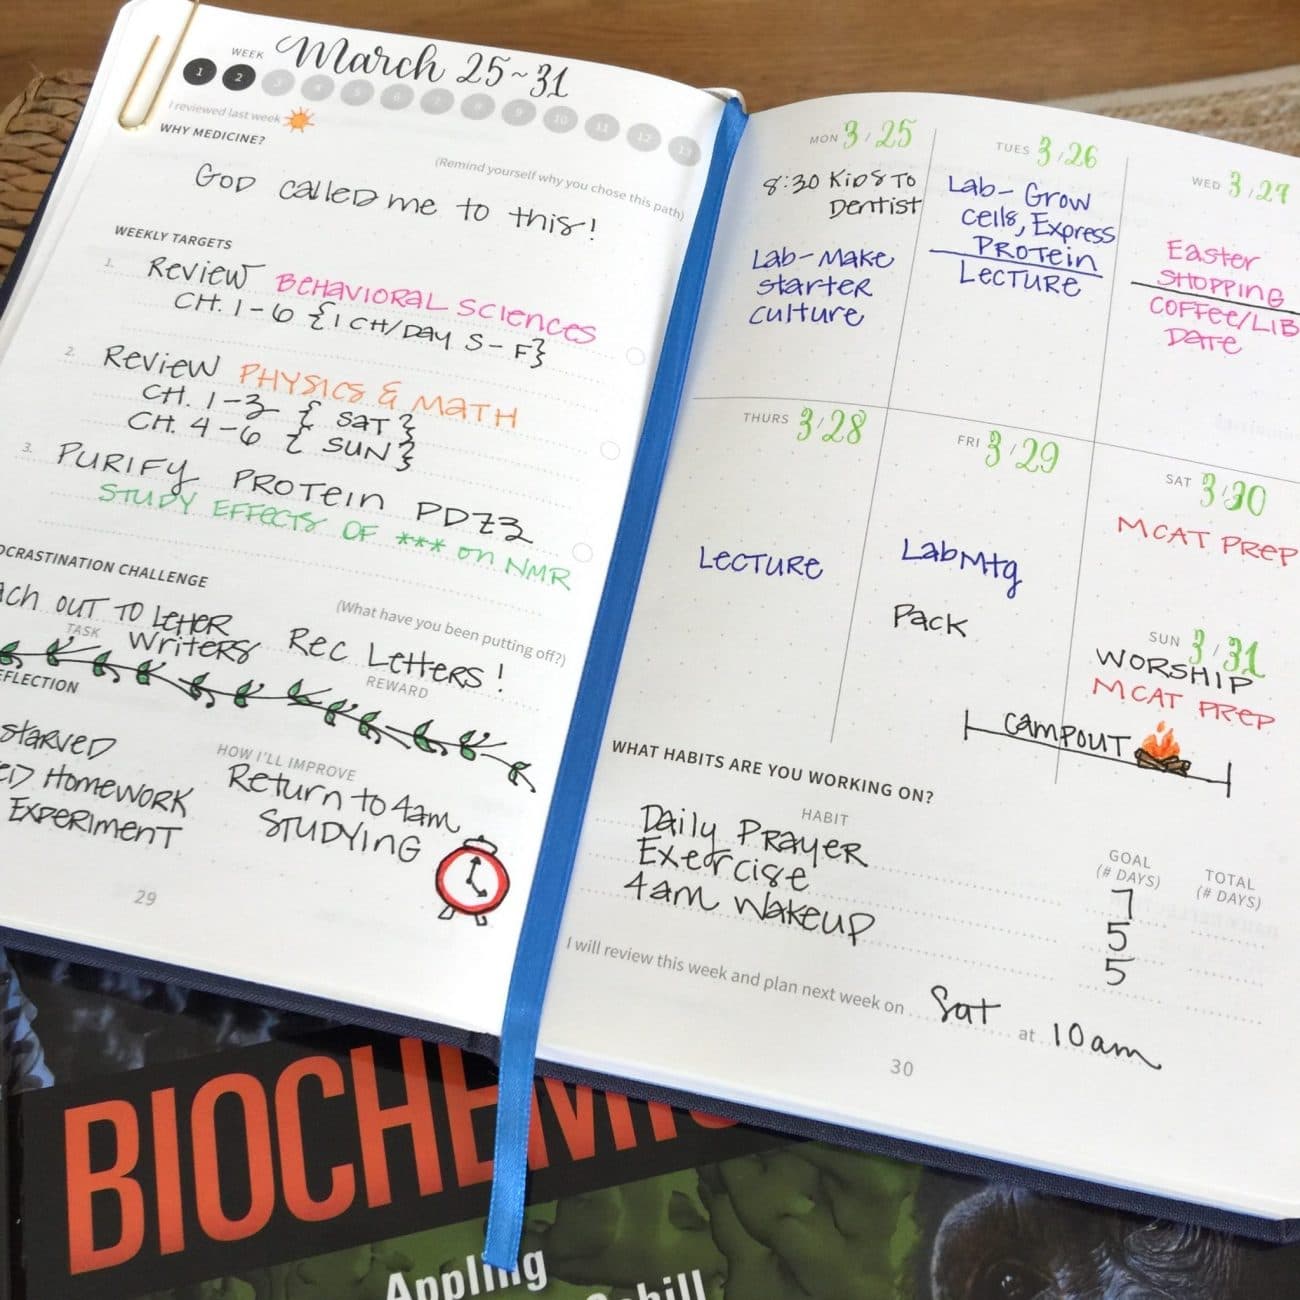 WEEK March 25~31
1 2 3 4 5 6 7 8 9 10 11 12 13
I reviewed last week
WHY MEDICINE?
(Remind yourself why you chose this path)
GOD called me to this!
WEEKLY TARGETS
1. Review BEHAVIORAL SCIENCES
CH. 1-6 {1 CH/DAY S-F}
2. Review PHYSICS & MATH
CH. 1-3 { SAT }
CH. 4-6 { SUN }
3. PURIFY PROTEIN PDZ3
STUDY EFFECTS OF *** on NMR
OCRASTINATION CHALLENGE
(What have you been putting off?)
ACH OUT TO LETTER
Writers
Rec Letters!
TASK
REWARD
EFLECTION
starved
HOMEWORK
EXPERIMENT
HOW I'LL IMPROVE
Return to 4am
STUDYING
29
MON 3/25
8:30 KIDS TO
Dentist
Lab-Make
starter
culture
TUES 3/26
Lab-Grow
cells, Express
PROTEIN
LECTURE
WED 3/27
Easter
SHOPPING
COFFEE/LIB
DATE
THURS 3/28
LECTURE
FRI 3/29
Lab Mtg
Pack
SAT 3/30
MCAT PREP
SUN 3/31
WORSHIP
MCAT PREP
CAMPOUT
WHAT HABITS ARE YOU WORKING ON?
HABIT
GOAL
(# DAYS)
TOTAL
(# DAYS)
Daily PRAYER 7
Exercise 5
4am Wakeup 5
I will review this week and plan next week on Sat at 10am
30
BIOCHEMIS
Appling